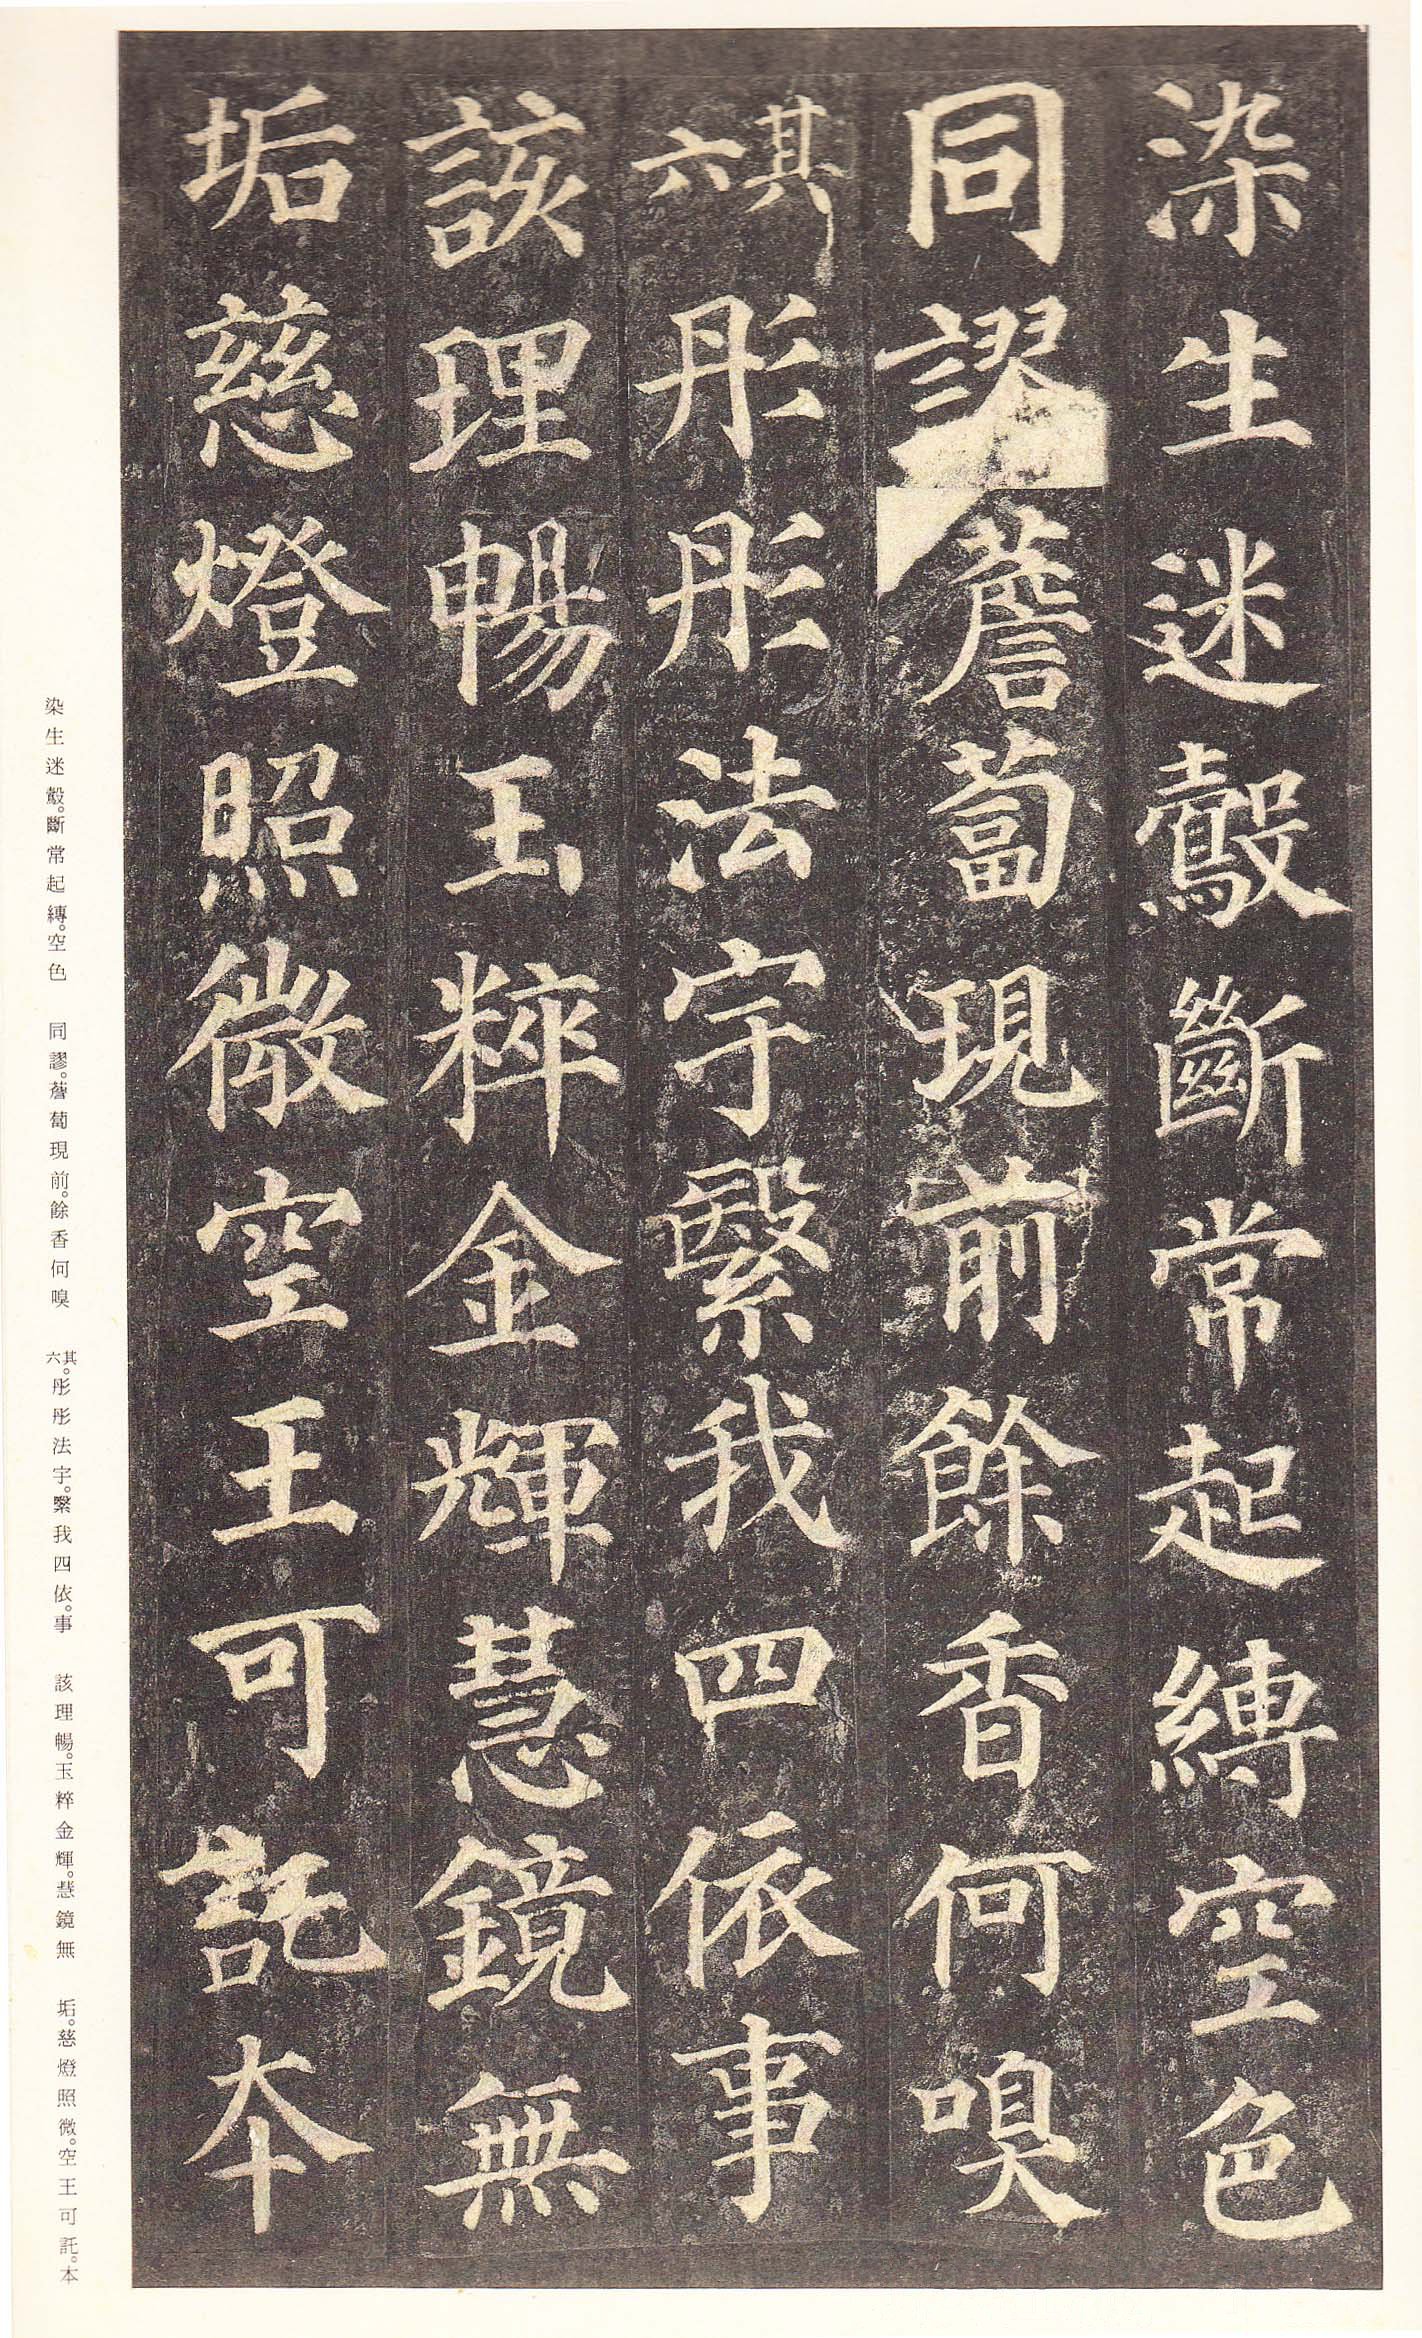 染生迷鷇斷常起縛空色
同謬薝蔔現前餘香何嗅
其六彤彤法宇繄我四依事
該理暢玉粹金輝慧鏡無
垢慈燈照微空王可託本
染生迷鷇。斷常起縛。空色 同謬。薝蔔現前。餘香何嗅 其六。彤彤法宇。繄我四依。事 該理暢。玉粹金輝。慧鏡無 垢。慈燈照微。空王可託。本